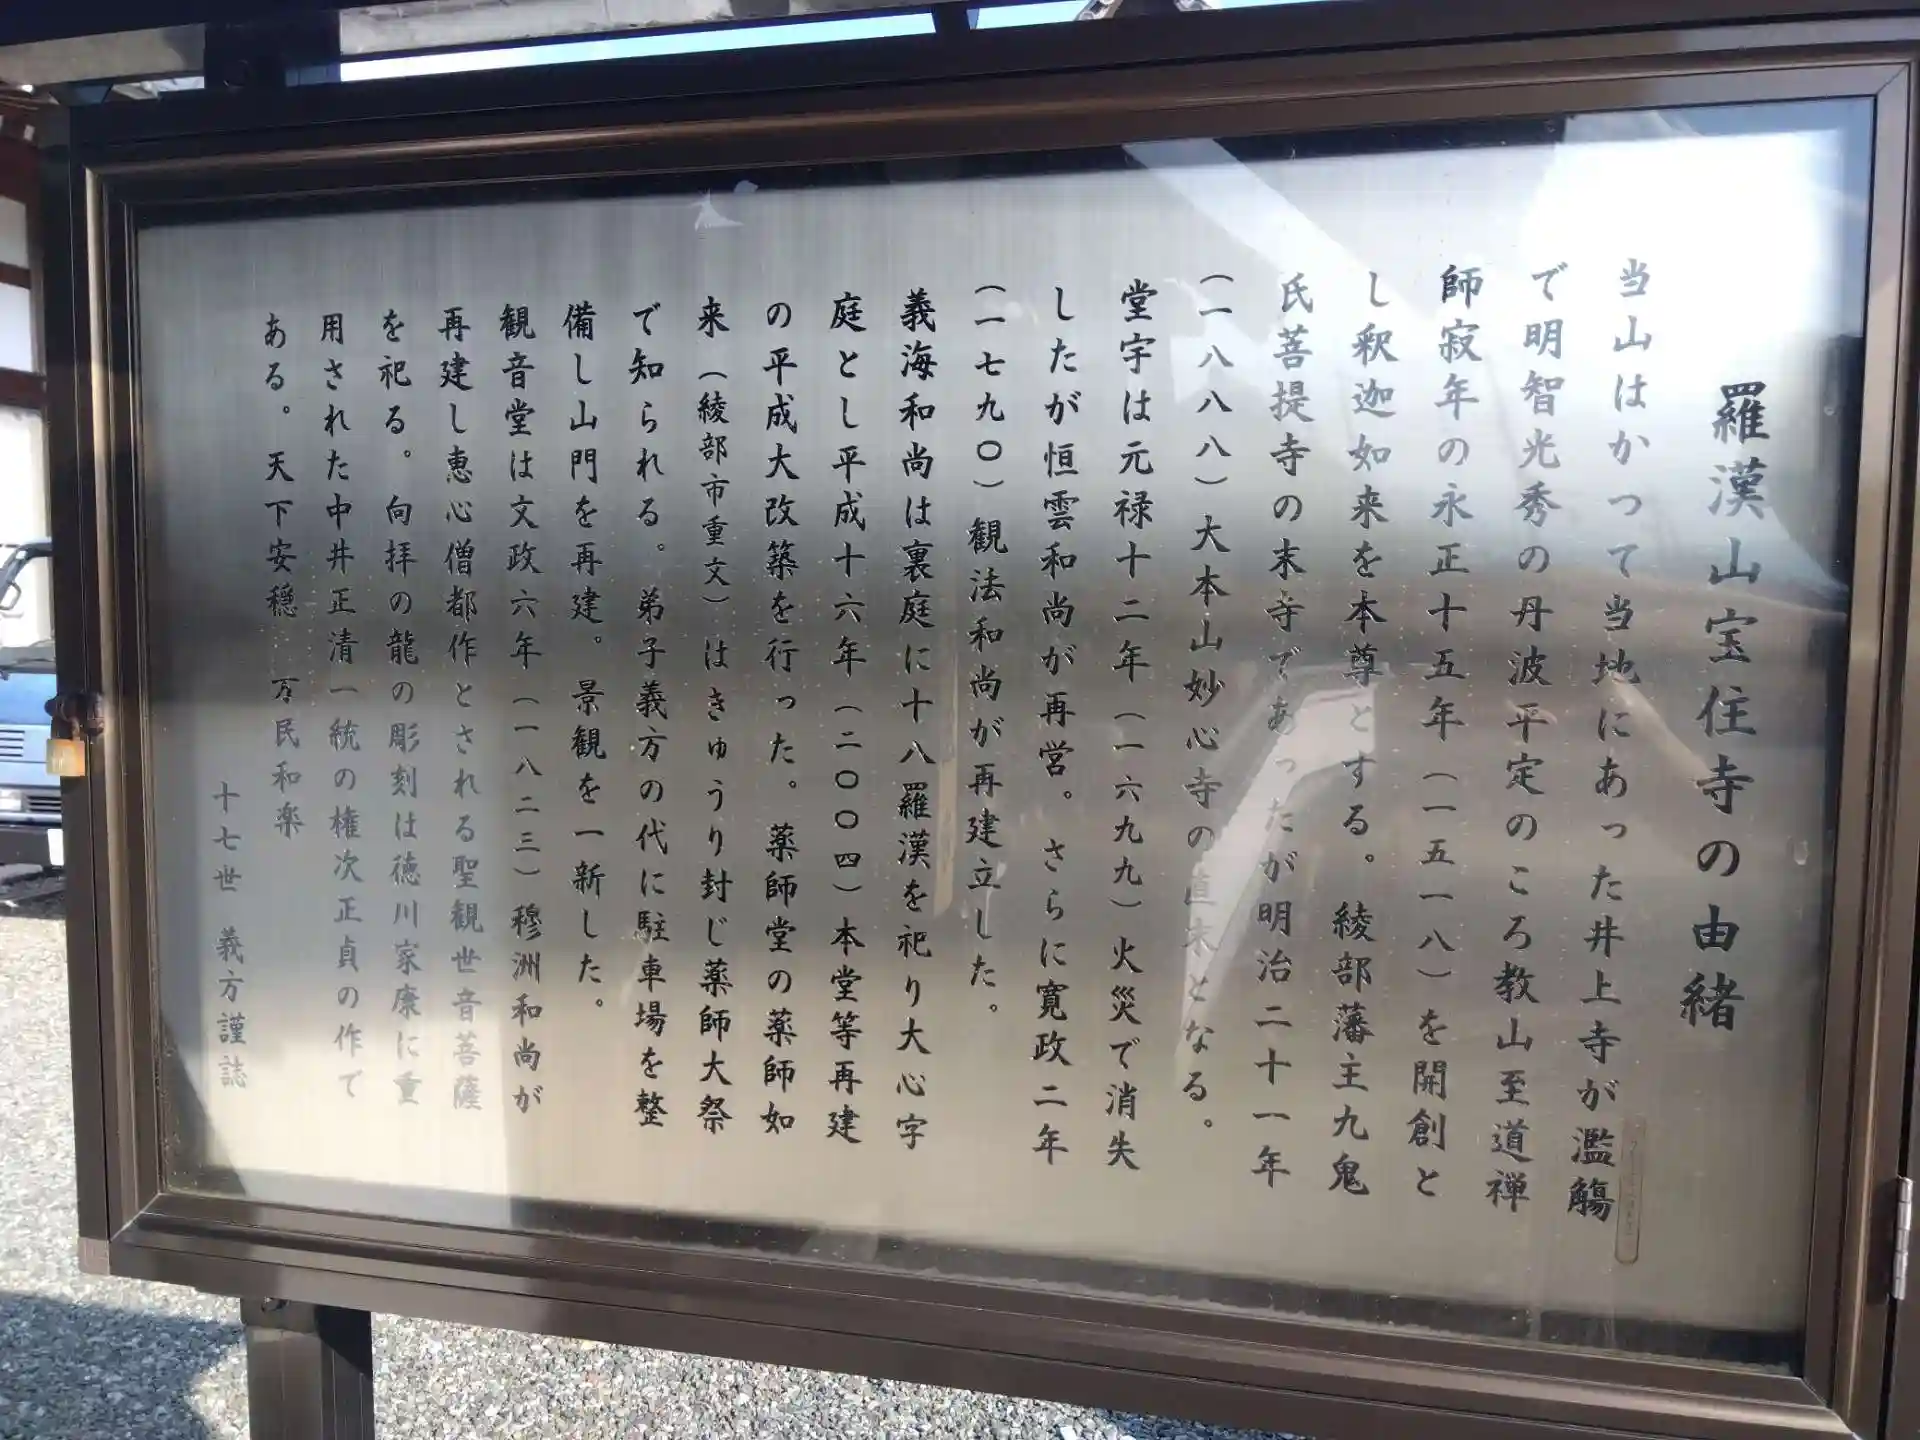 羅漢山宝住寺の由緒
当山はかつて当地にあった井上寺が濫觴
で明智光秀の丹波平定のころ教山至道禅
師寂年の永正十五年（一五一八）を開創と
し釈迦如来を本尊とする。綾部藩主九鬼
氏菩提寺の末寺であったが明治二十一年
（一八八八）大本山妙心寺の直末となる。
堂宇は元禄十二年（一六九九）火災で消失
したが恒雲和尚が再営。さらに寛政二年
（一七九〇）観法和尚が再建立した。
義海和尚は裏庭に十八羅漢を祀り大心字
庭とし平成十六年（二〇〇四）本堂等再建
の平成大改築を行った。薬師堂の薬師如
来（綾部市重文）はきゅうり封じ薬師大祭
で知られる。弟子義方の代に駐車場を整
備し山門を再建。景観を一新した。
観音堂は文政六年（一八二三）穆洲和尚が
再建し恵心僧都作とされる聖観世音菩薩
を祀る。向拝の龍の彫刻は徳川家康に重
用された中井正清一統の権次正貞の作で
ある。天下安穏 万民和楽
十七世 義方謹誌